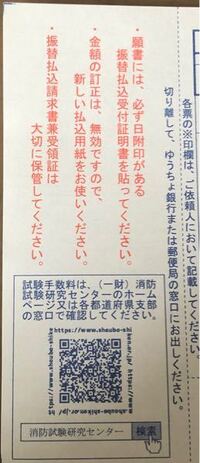 各票の※印欄は、ご依頼人において記載してください。
切り離して、ゆうちょ銀行または郵便局の窓口にお出しください。
・願書には、必ず日附印がある
振替払込受付証明書を貼ってください。
・金額の訂正は、無効ですので、
新しい払込用紙をお使いください。
・振替払込請求書兼受領証は
大切に保管してください。
試験手数料は、(一財)消防
試験研究センターのホーム
ページ又は各都道府県支部
の窓口で確認してください。
https://www.shoubo-shi
ken.or.jp/
https://www.shoubo-shiken.or.jp/
消防試験研究センター 検索